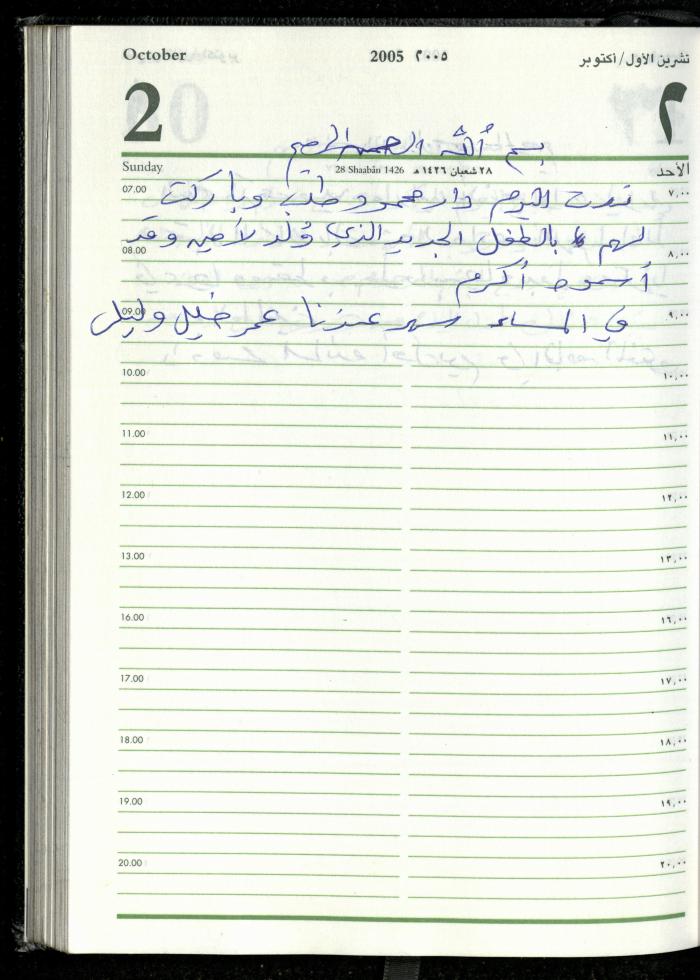 October 2005 ٢٠٠٥ تشرين الأول/أكتوبر
2 ٢
بسم ألله الرحمن الرحيم
Sunday 28 Shaabān 1426 ٢٨ شعبان ١٤٢٦ هـ الأحد
07.00 ٧,٠٠
اليوم دار محمود وباركت
لهم بالطفل الجديد الذي وُلد لأمين وقد
08.00 ٨,٠٠
أسموه أكرم
09.00 ٩,٠٠
في المساء سهر عندنا عمر خليل وليلى
10.00 ١٠,٠٠
11.00 ١١,٠٠
12.00 ١٢,٠٠
13.00 ١٣,٠٠
16.00 ١٦,٠٠
17.00 ١٧,٠٠
18.00 ١٨,٠٠
19.00 ١٩,٠٠
20.00 ٢٠,٠٠